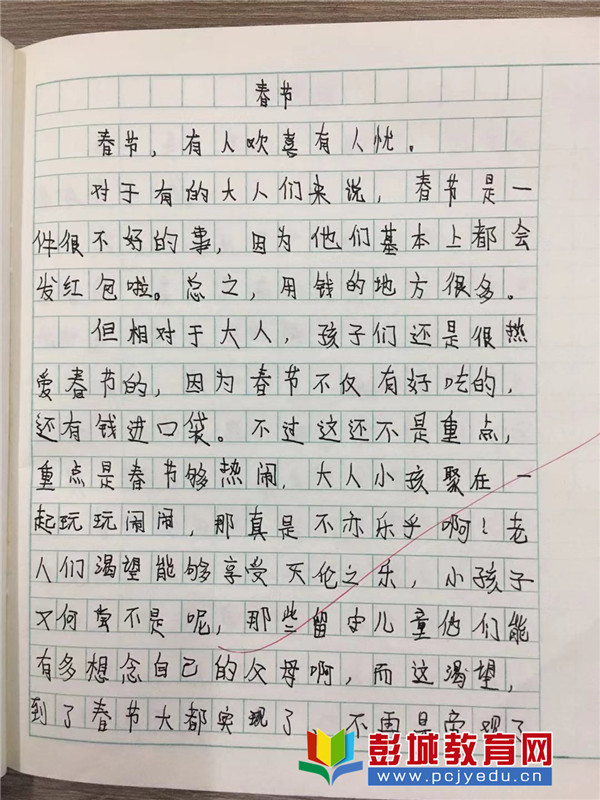 春节
春节，有人欢喜有人忧。
对于有的大人们来说，春节是一
件很不好的事，因为他们基本上都会
发红包啦。总之，用钱的地方很多。
但相对于大人，孩子们还是很热
爱春节的，因为春节不仅有好吃的，
还有钱进口袋。不过这还不是重点，
重点是春节够热闹，大人小孩聚在一
起玩玩闹闹，那真是不亦乐乎啊！老
人们渴望能够享受天伦之乐，小孩子
又何尝不是呢，那些留守儿童他们能
有多想念自己的父母啊，而这渴望，
到了春节大都实现了 不再是
彭城教育网
www.pcjyedu.cn